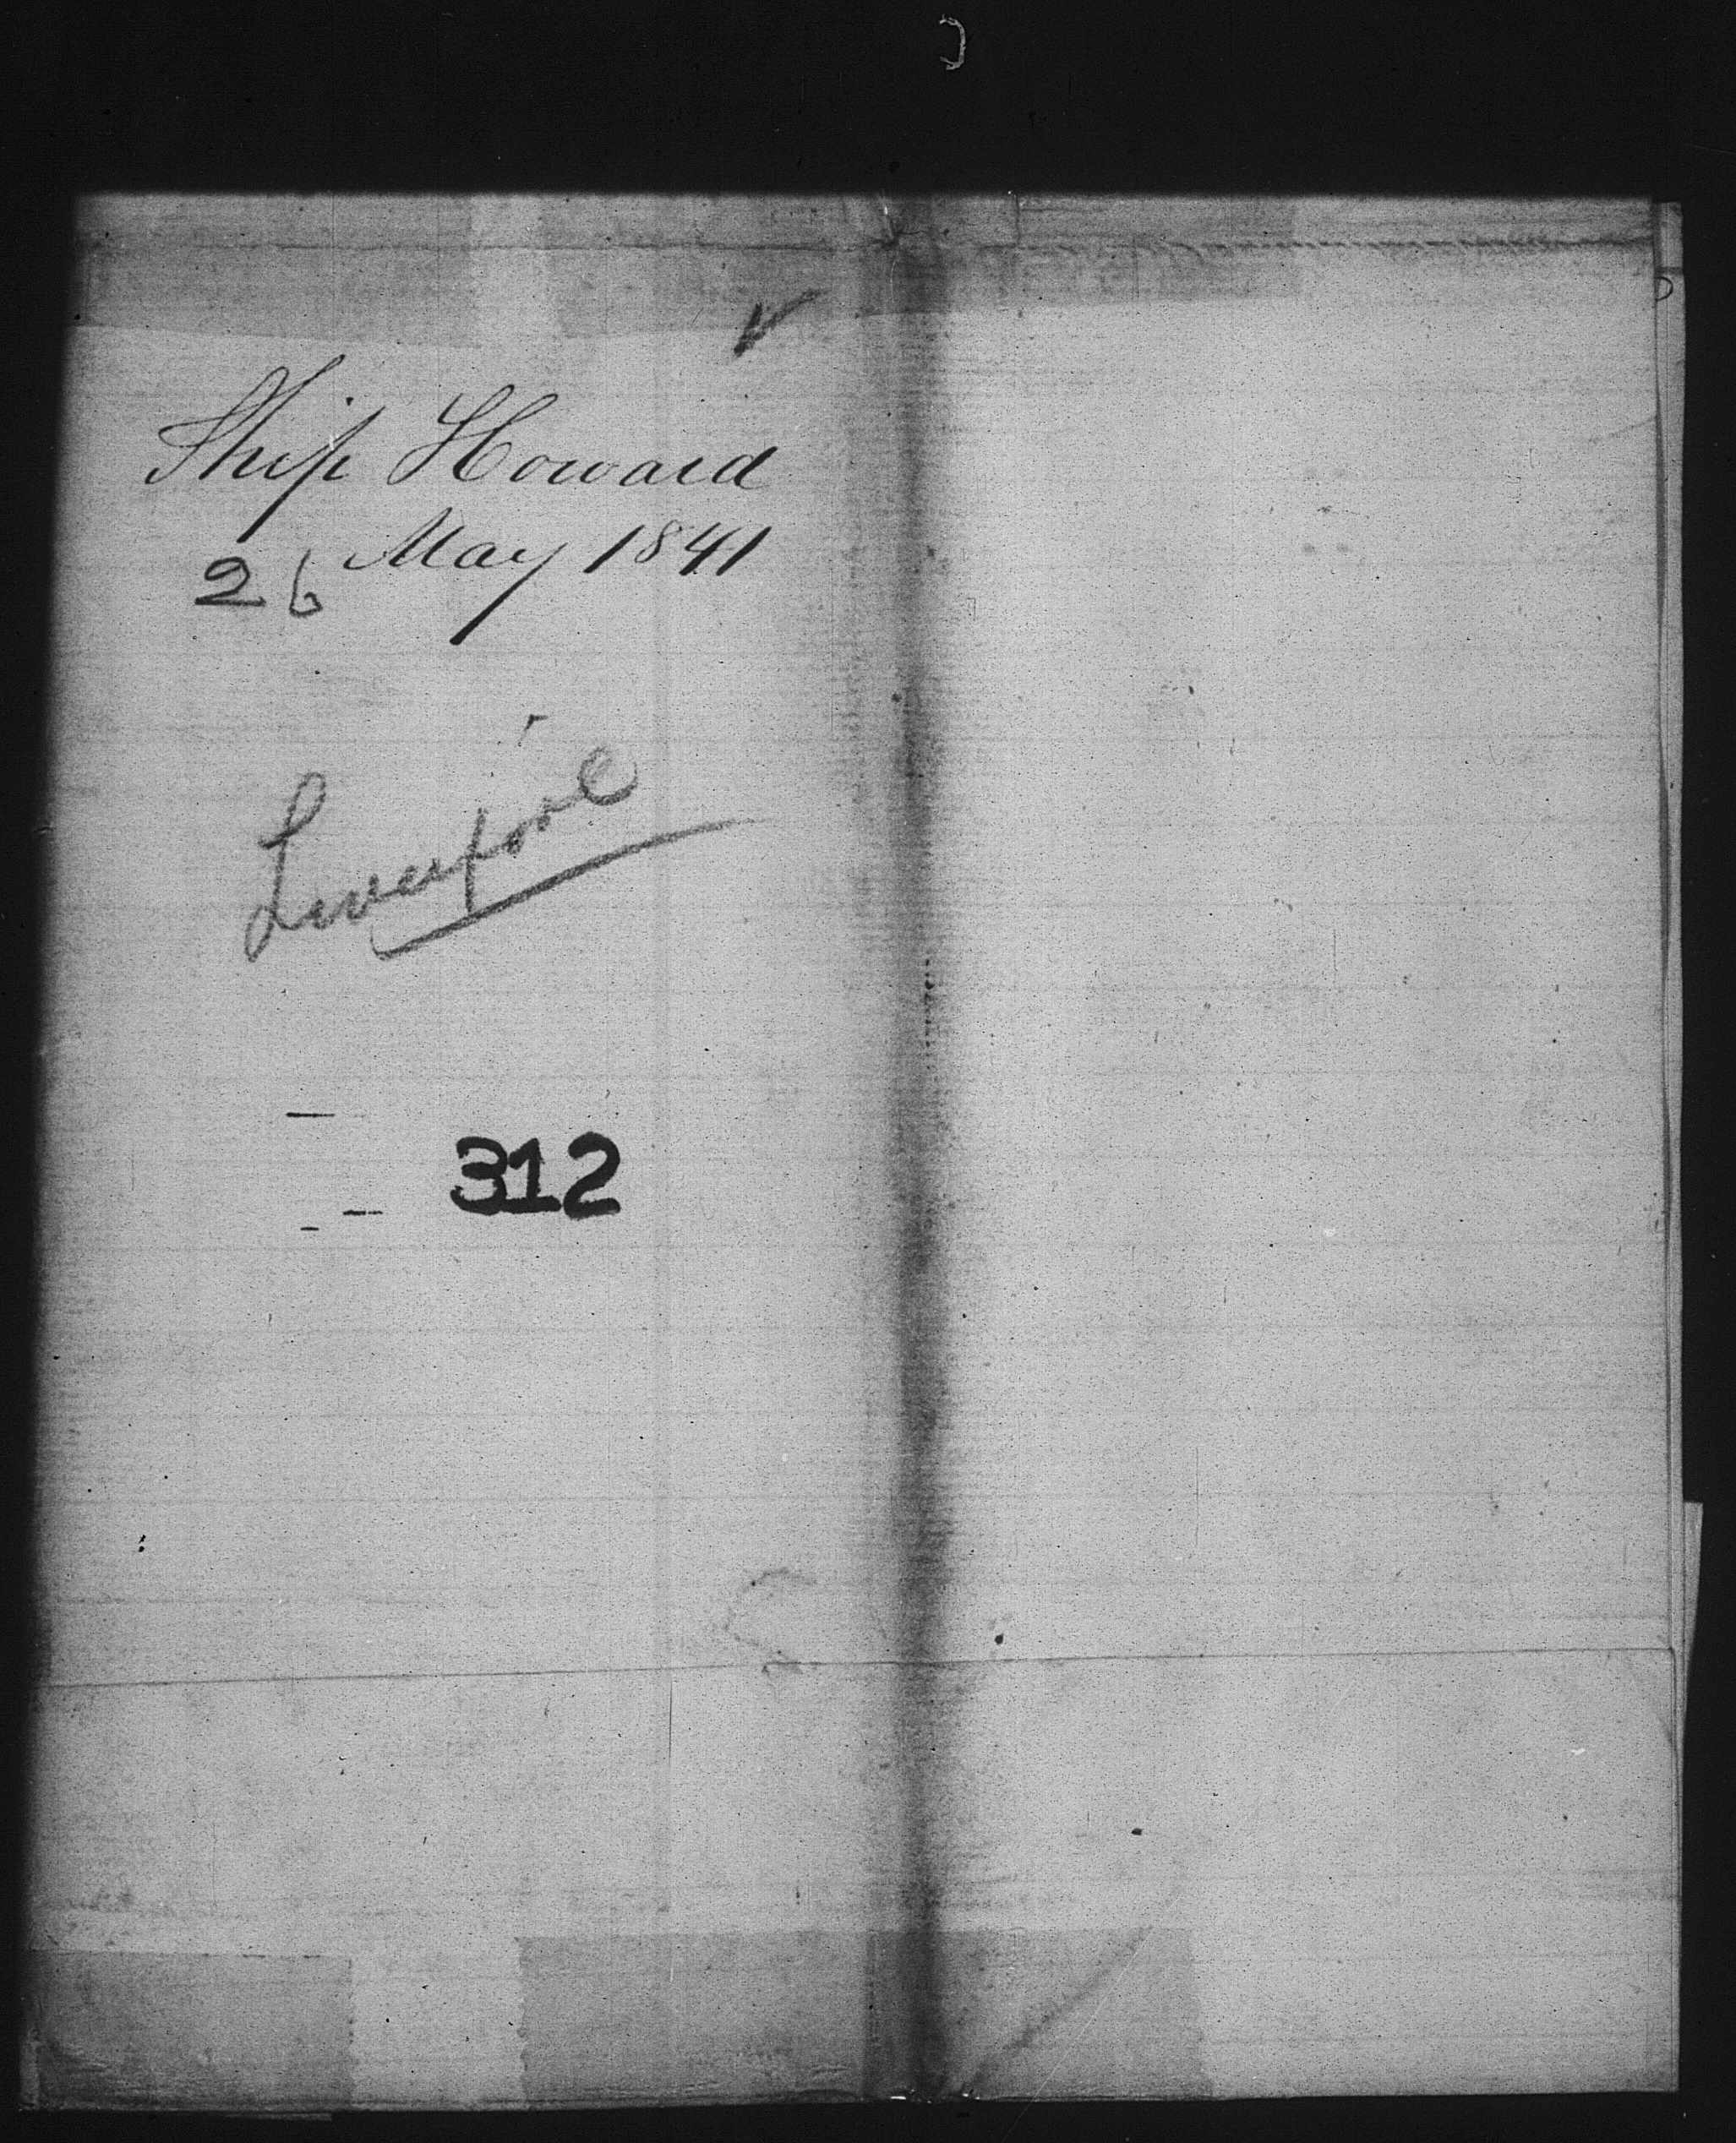 Ship Howard
26 May 1841
Liverpool
312